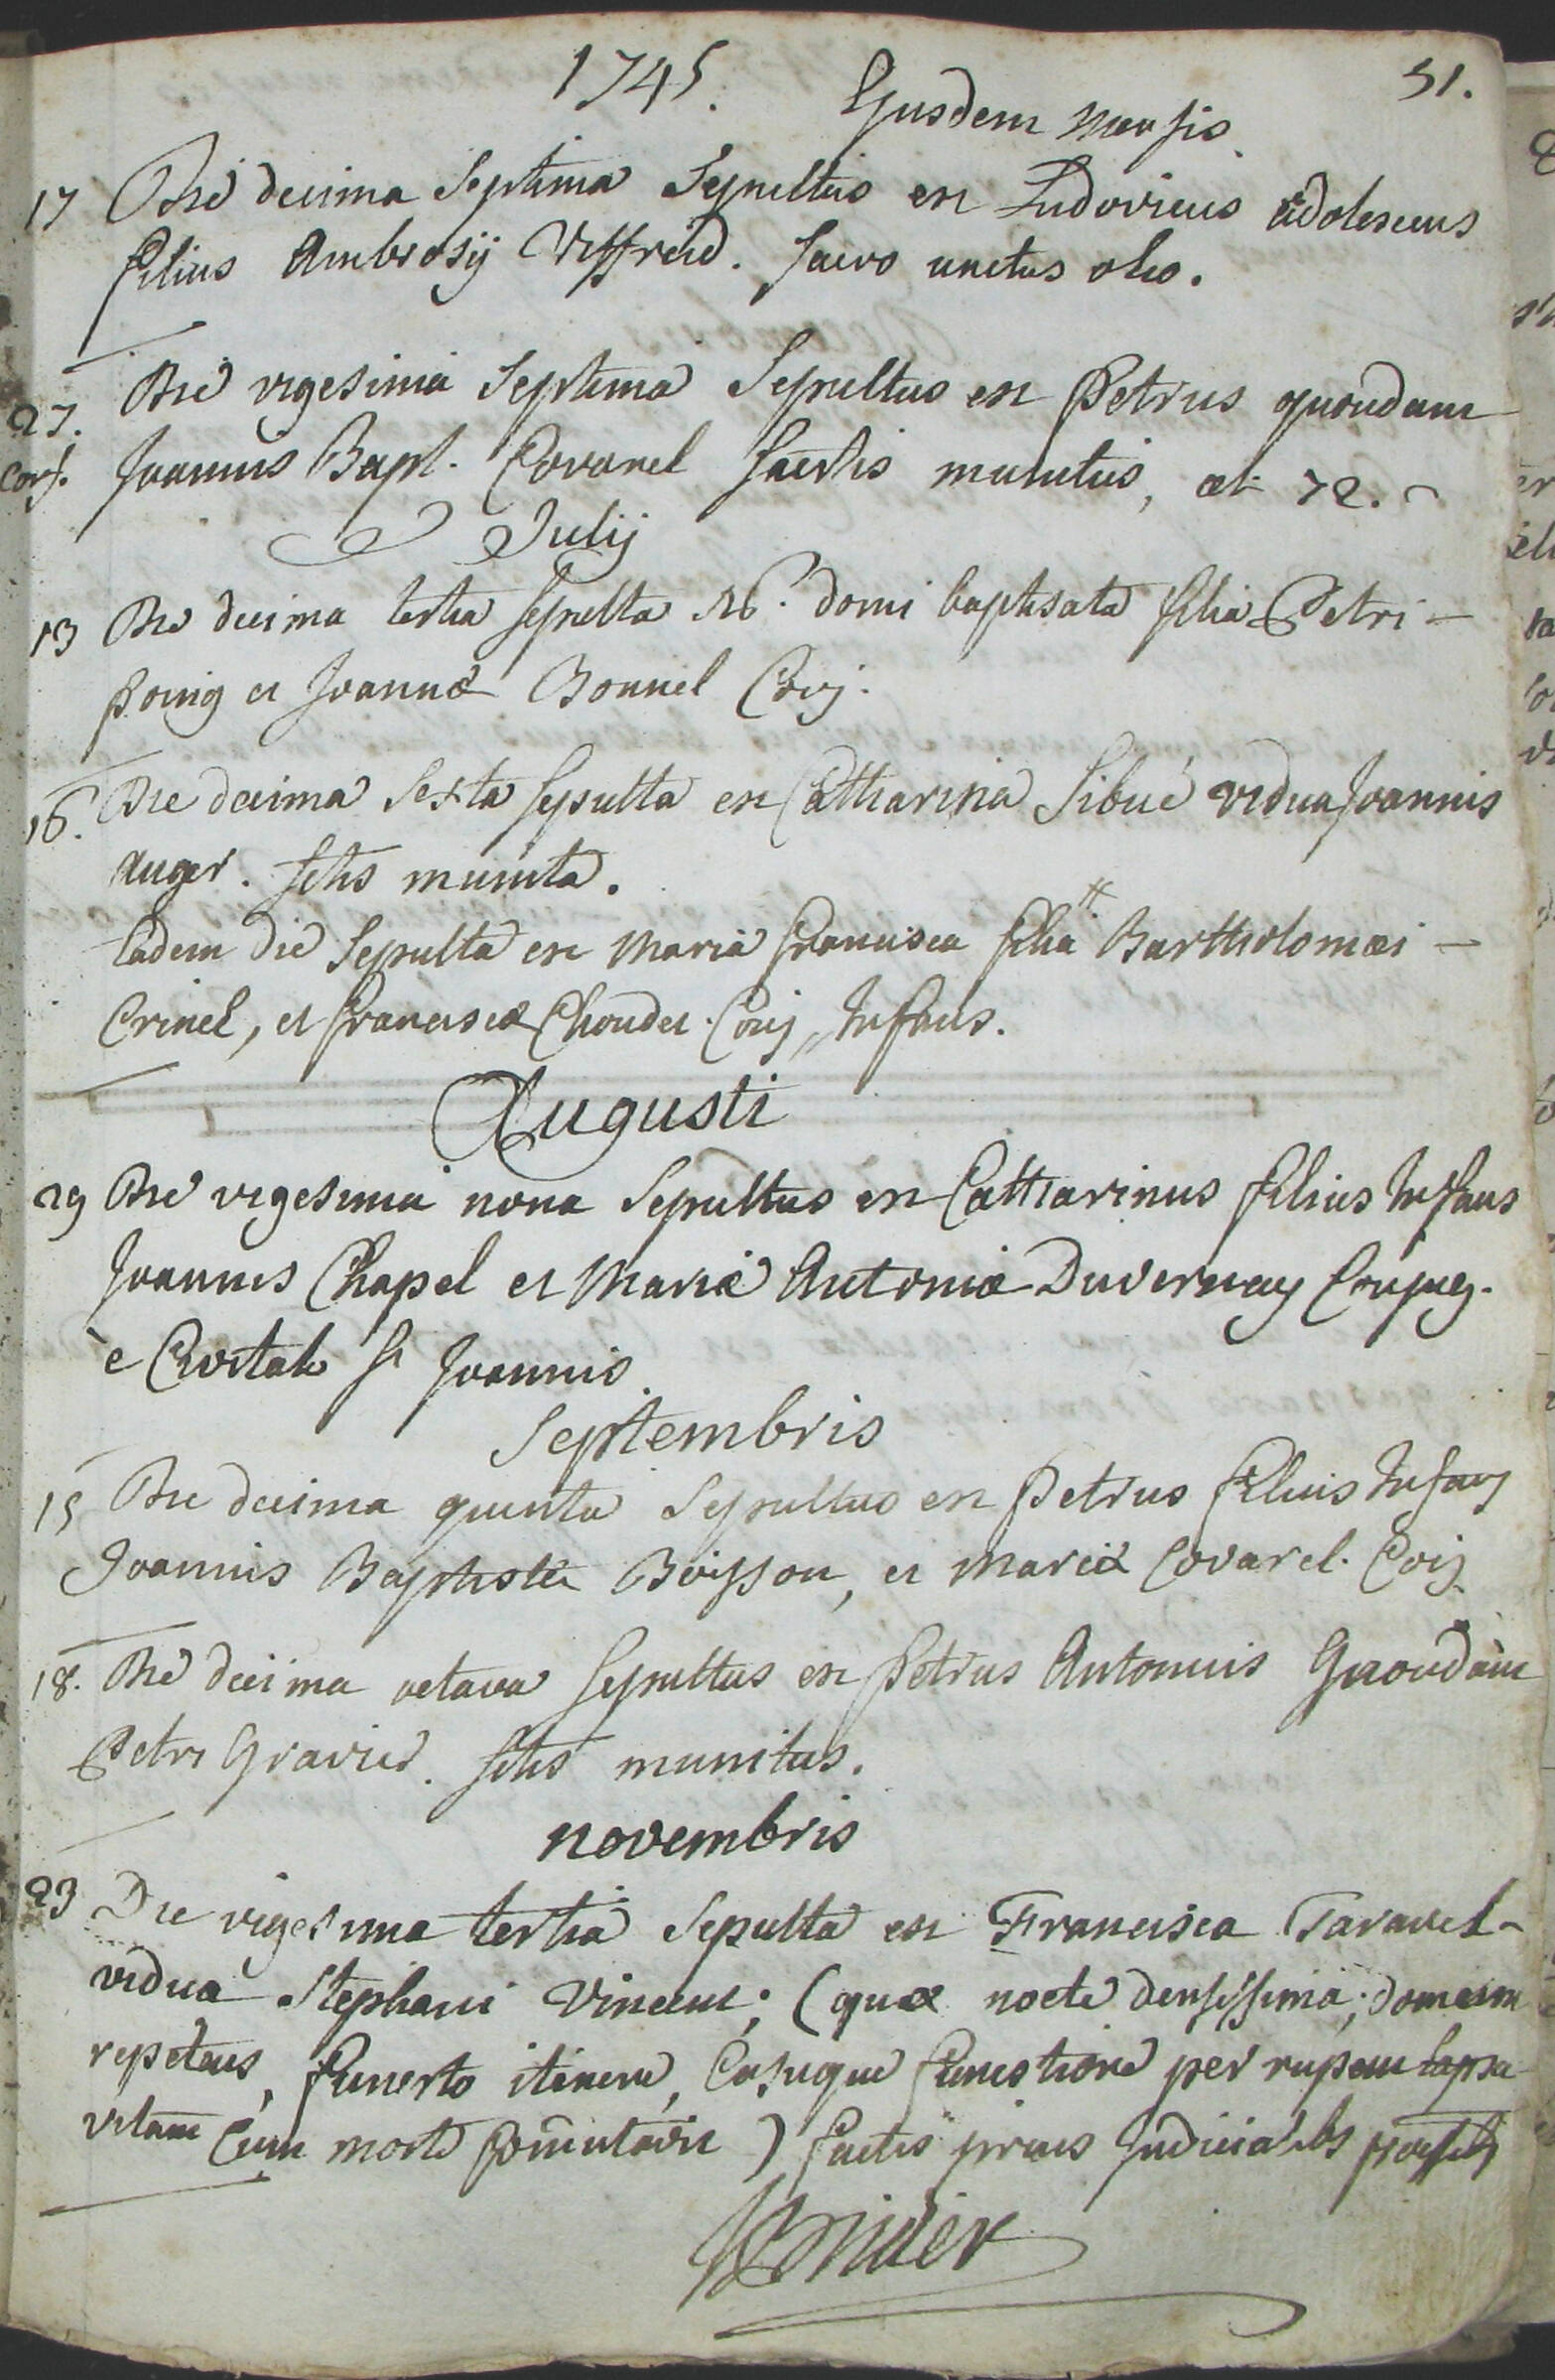 1745. 51.
Ejusdem Mensis
17 Die decima Septima Sepultus est Ludovicus adolescens
filius Ambrosij Viffred. sacro unctus oleo.
27. Die vigesima Septima Sepultus est Petrus quondam
conf. Joannis Bapt. Covarel sactis munitus, æt 72.
Julij
13 Die decima tertia sepulta est domi baptisata filia Petri
et Joannæ Bonnel Conj.
16. Die decima Sexta sepulta est Catharina Sibué vidua Joannis
Auger. sctis munita.
Eadem die Sepulta est Maria francisca filia Bartholomæi
Crinel, et franciscæ Choudet Conj, Infans.
Augusti
29 Die vigesima nona Sepultus est Catharinus filius Infans
Joannis Chapel et Mariæ Antoniæ Duvernay Conjug.
è Civitate St Joannis.
Septembris
15 Die decima quinta Sepultus est Petrus filius Infans
Joannis Baptistæ Boisson, et Mariæ Covarel. Conj.
18. Die decima octava sepultus est Petrus Antonius quondam
Petri Gravier. sctis munitus.
novembris
23 Die vigesima tertia Sepulta est Francisca Taravel
vidua Stephani Vincent; (quæ nocte densissima; domum
repetens, funesto itinere, Casuque funestiore per rupem lapsa
vitam Cum morte com̃utavit) factis prius Judicialibs